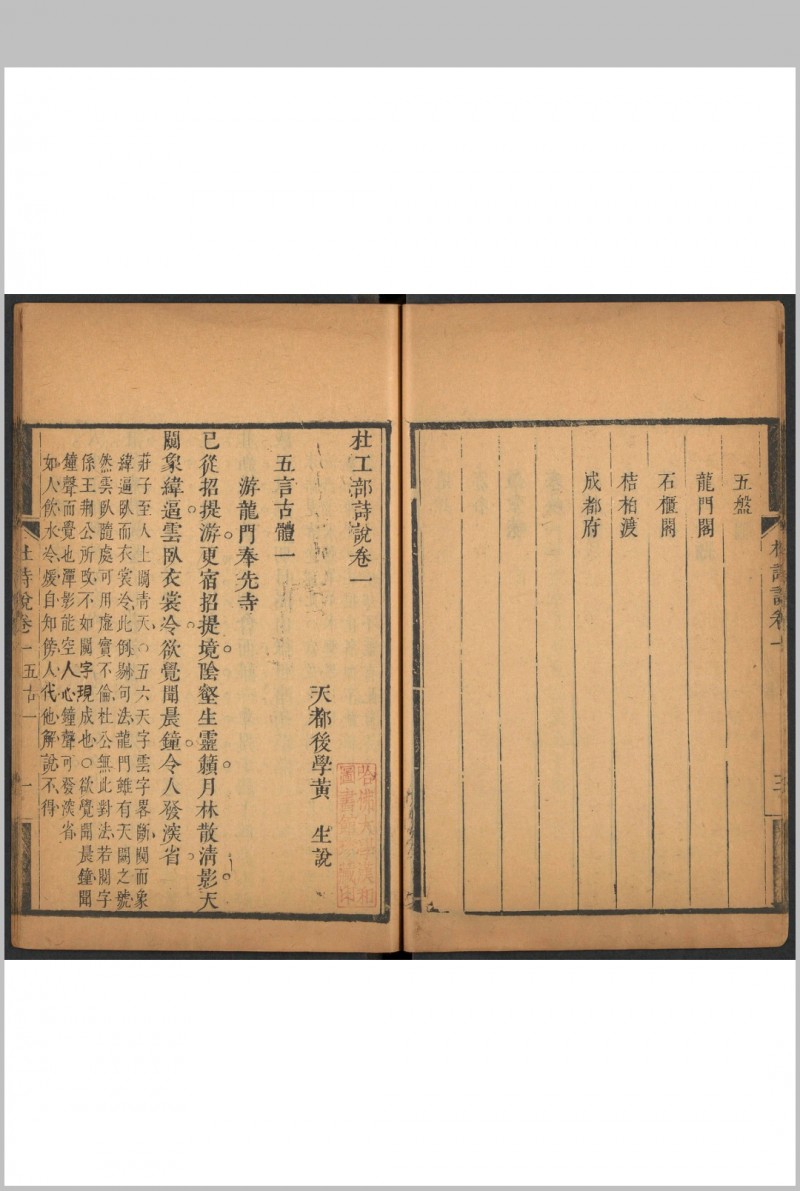 五盤
龍門閣
石櫃閣
桔柏渡
成都府
杜詩說卷一
三
杜工部詩說卷一
天都後學黃生說
五言古體一
游龍門奉先寺
已從招提游更宿招提境陰壑生靈籟月林散清影天
闚象緯逼雲臥衣裳冷欲覺聞晨鐘令人發深省
莊子至人上闚青天○五六天字雲字畧斷闚而象
緯逼臥而衣裳冷此倒剔句法龍門雖有天闕之號
然雲臥隨處可用虛實不倫杜公無此對法若閱字
係王荆公所改不如闚字現成也○欲覺聞晨鐘聞
鐘聲而覺也潭影能空人心鐘聲可發深省
如人飲水冷煖自知傍人代他解說不得
杜詩說卷一五古一
一